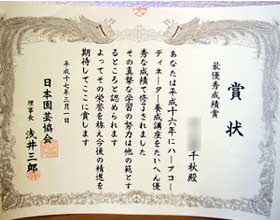 賞状
最優秀成績賞
千秋殿
あなたは平成十六年にハーブコー
ディネーター養成講座をたいへん優
秀な成績で修了されました
その真摯な学習の努力は他の範とす
るところと認められます
よってその栄誉を称え今後の精進を
期待してここに賞します
平成十七年三月一日
日本園芸協会
理事長 浅井三郎